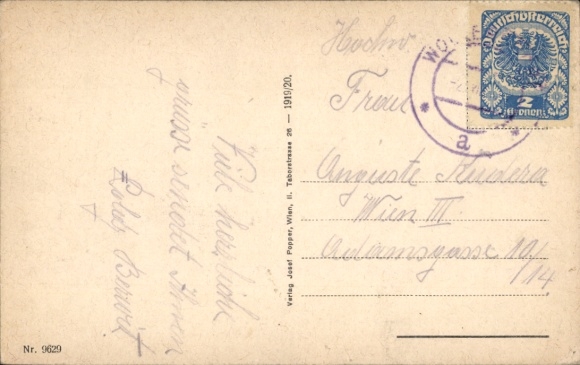 Viele herzliche
Grüsse sendet Ihnen
Verlag Josef Popper, Wien, II. Taborstrasse 26 — 1919/20.
Hochw.
Frau
Auguste
Wien III.
Adamsgasse 10/14
Deutschösterreich
2
Kronen
WO
a
Nr. 9629